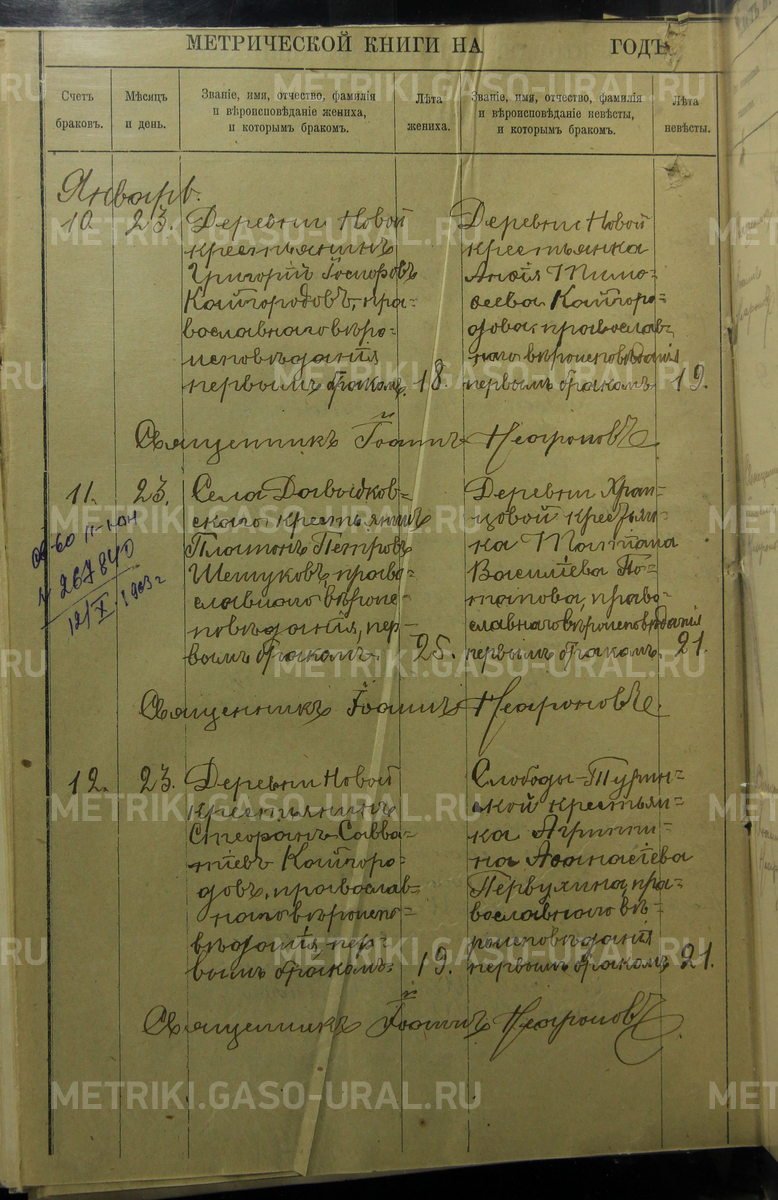 МЕТРИЧЕСКОЙ КНИГИ НА ГОДЪ
Счетъ браковъ.
Мѣсяцъ и день.
Званіе, имя, отчество, фамилія
и вѣроисповѣданіе жениха,
и которымъ бракомъ.
Лѣта жениха.
Званіе, имя, отчество, фамилія
и вѣроисповѣданіе невѣсты,
и которымъ бракомъ.
Лѣта невѣсты.
Январь.
10. 23.
Деревни Новой
крестьянинъ
Григорій
Кайгородовъ, пра-
вославнаго вѣро-
исповѣданія
первымъ бракомъ. 18.
Деревни Новой
крестьянка
Тимо-
ѳеева Кайгоро-
дова, православ-
наго вѣроисповѣданія
первымъ бракомъ 19.
Священникъ Іоаннъ
11. 23.
Села Давыдков-
скаго крестьянинъ
Платонъ Петровъ
православ
славнаго вѣроис-
повѣданія, пер-
вымъ бракомъ 25.
Деревни Храп-
цовой крестьян-
ка Татіана
Василіева По-
тапова, право-
славнаго вѣроисповѣданія
первымъ бракомъ. 21.
Священникъ Іоаннъ
12. 23.
Деревни Новой
крестьянинъ
Стефанъ Савва-
тіевъ Кайгоро-
довъ, православ-
наго вѣроиспо-
вѣданія, пер-
вымъ бракомъ. 19.
Слободы-Турин-
ской крестьян-
ка Агриппи-
на Аѳанасіева
Первухина, пра-
вославнаго вѣ-
роисповѣданія
первымъ бракомъ 21.
Священникъ Іоаннъ
№ 267840
12/X 1963 г
METRIKI.GASO-URAL.RU